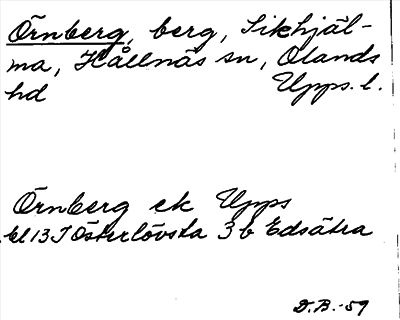 Örnberg, berg, Sikhjäl-
ma, Hållnäs sn, Olands
hd Upps. l.
Örnberg ek Upps
bl 13 I Österlövsta 3 b Edsätra
D.B.-59